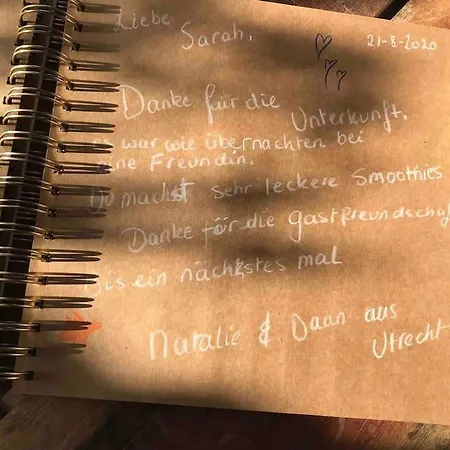 Liebe Sarah,
21-8-2020
Danke für die Unterkunft,
es war wie übernachten bei
eine Freundin.
Du machst sehr leckere Smoothies
Danke für die gastfreundschaf
Bis ein nächstes mal
Natalie & Daan aus
Utrecht